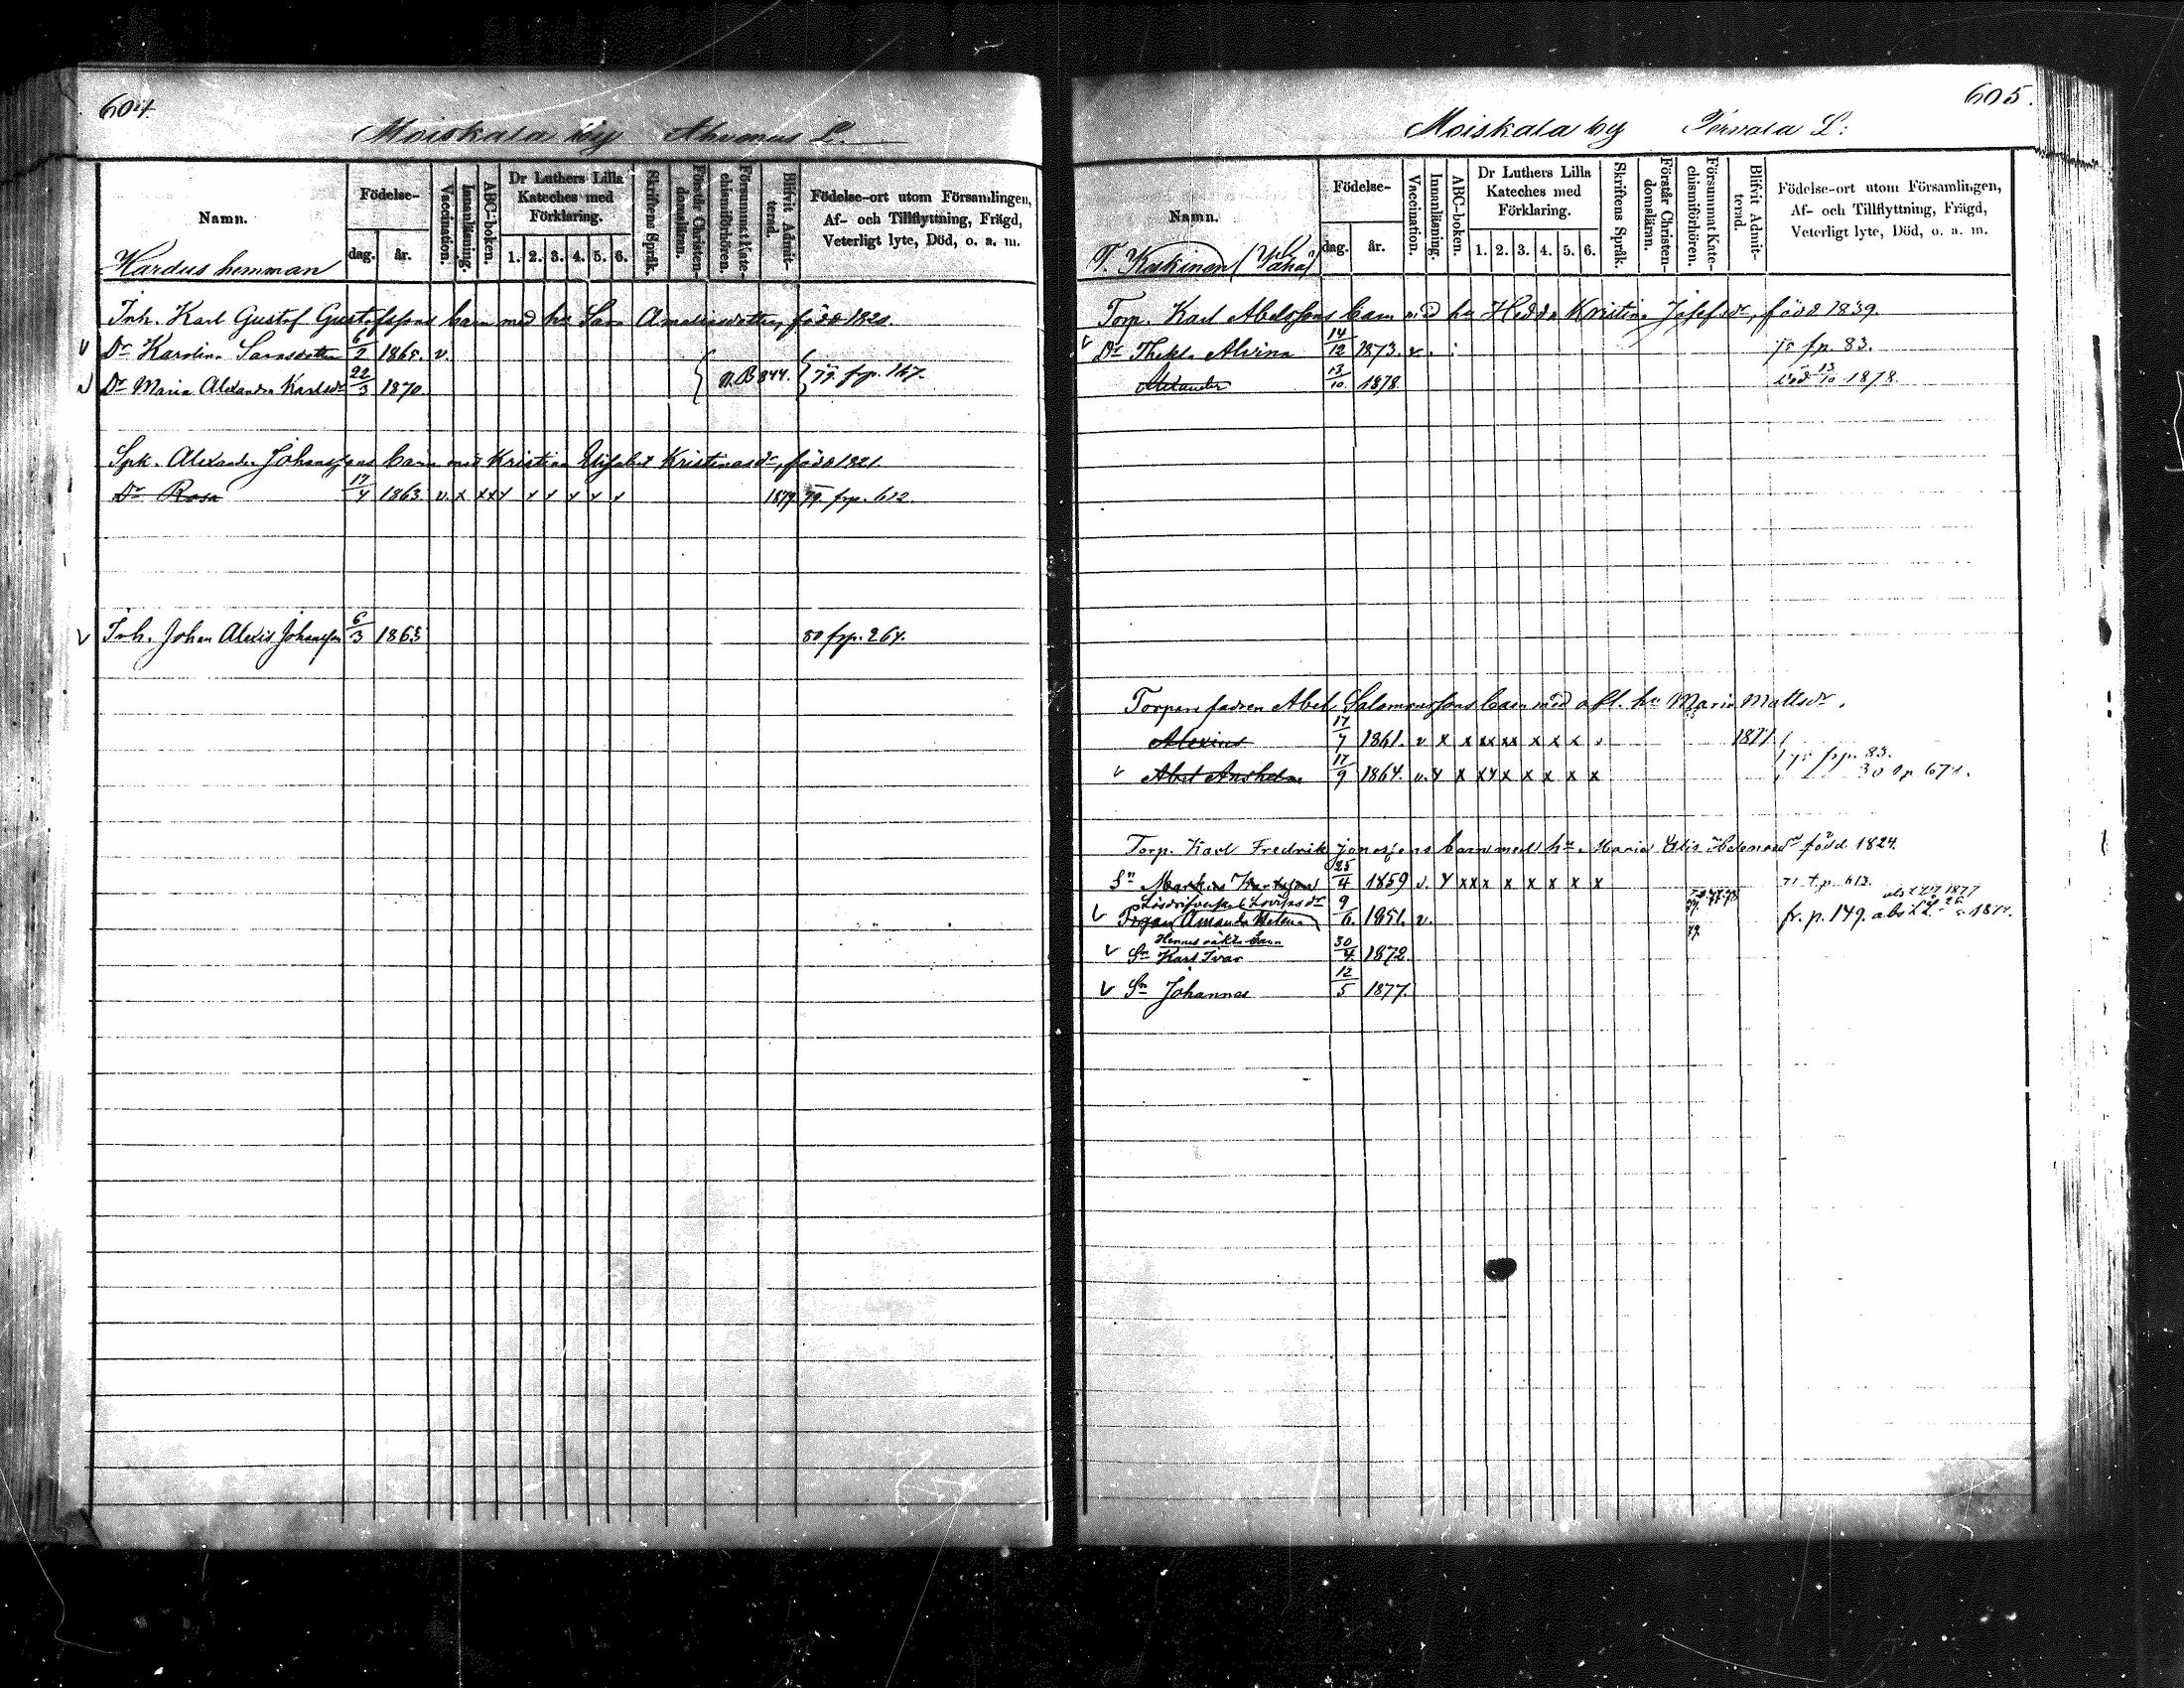 604.
Moiskala by Ahvenus L.
Namn.
Födelse-
dag. år.
Vaccination.
Innanläsning.
ABC-boken.
Dr Luthers Lilla Kateches med Förklaring.
1. 2. 3. 4. 5. 6.
Skriftens Språk.
Förstår Christen-domslärnn.
Försummat Kate-chismiförhören.
Blifvit Admit-terad.
Födelse-ort utom Församlingen,
Af- och Tillflyttning, Frägd,
Veterligt lyte, Död, o. a. m.
Kardus hemman
Inh. Karl Gustaf Gustafssons barn med hu Sara Amaliasdotter, född 1820.
v Dr Karolina Sarasdotter 6/2 1865. v.
v Dr Maria Alexandra Karlsdr 22/3 1870. 77. frp. 167.
Spk. Alexander Johanssons barn med Kristina Elisabet Kristinasdr, född 1821.
Dr Rosa 17/4 1863 v. x x x x x x x x x 1879 79 frp. 612.
v Inh. Johan Alexis Johansson 6/3 1863 80 frp. 264.
605.
Moiskala by L:
Namn.
Födelse-
dag. år.
Vaccination.
Innanläsning.
ABC-boken.
Dr Luthers Lilla Kateches med Förklaring.
1. 2. 3. 4. 5. 6.
Skriftens Språk.
Förstår Christen-domslärnn.
Försummat Kate-chismiförhören.
Blifvit Admit-terad.
Födelse-ort utom Församlingen,
Af- och Tillflyttning, Frägd,
Veterligt lyte, Död, o. a. m.
T. Keskinen
Torp. Karl Abelssons barn med hu Hedda Kristina Josefsdr, född 1839.
v Dr Thekla Alvina 14/12 1873. v. fp 83.
Alexander 13/10. 1878 död 13/10 1878.
Torpare fadren Abel Salomonssons barn med afl. hu Maria Mattsdr.
Alexius 17/7 1861. v x x xx xx x x x 1877
v Abel Anshelm 17/9 1864. v. x x xx x x x x x frp. 83.
Torp. Karl Fredrik Jonassons barn med hu Maria Elis Helenasdr född 1824.
Sn Markus Karlsson 25/4 1859 v. x xx x x x x x x 613.
v Amanda Helena 9/6. 1851. v. fr. p. 149.
Hennes oäkta barn
v Sn Karl Ivar 30/4 1872
v Sn Johannes 12/5 1877.